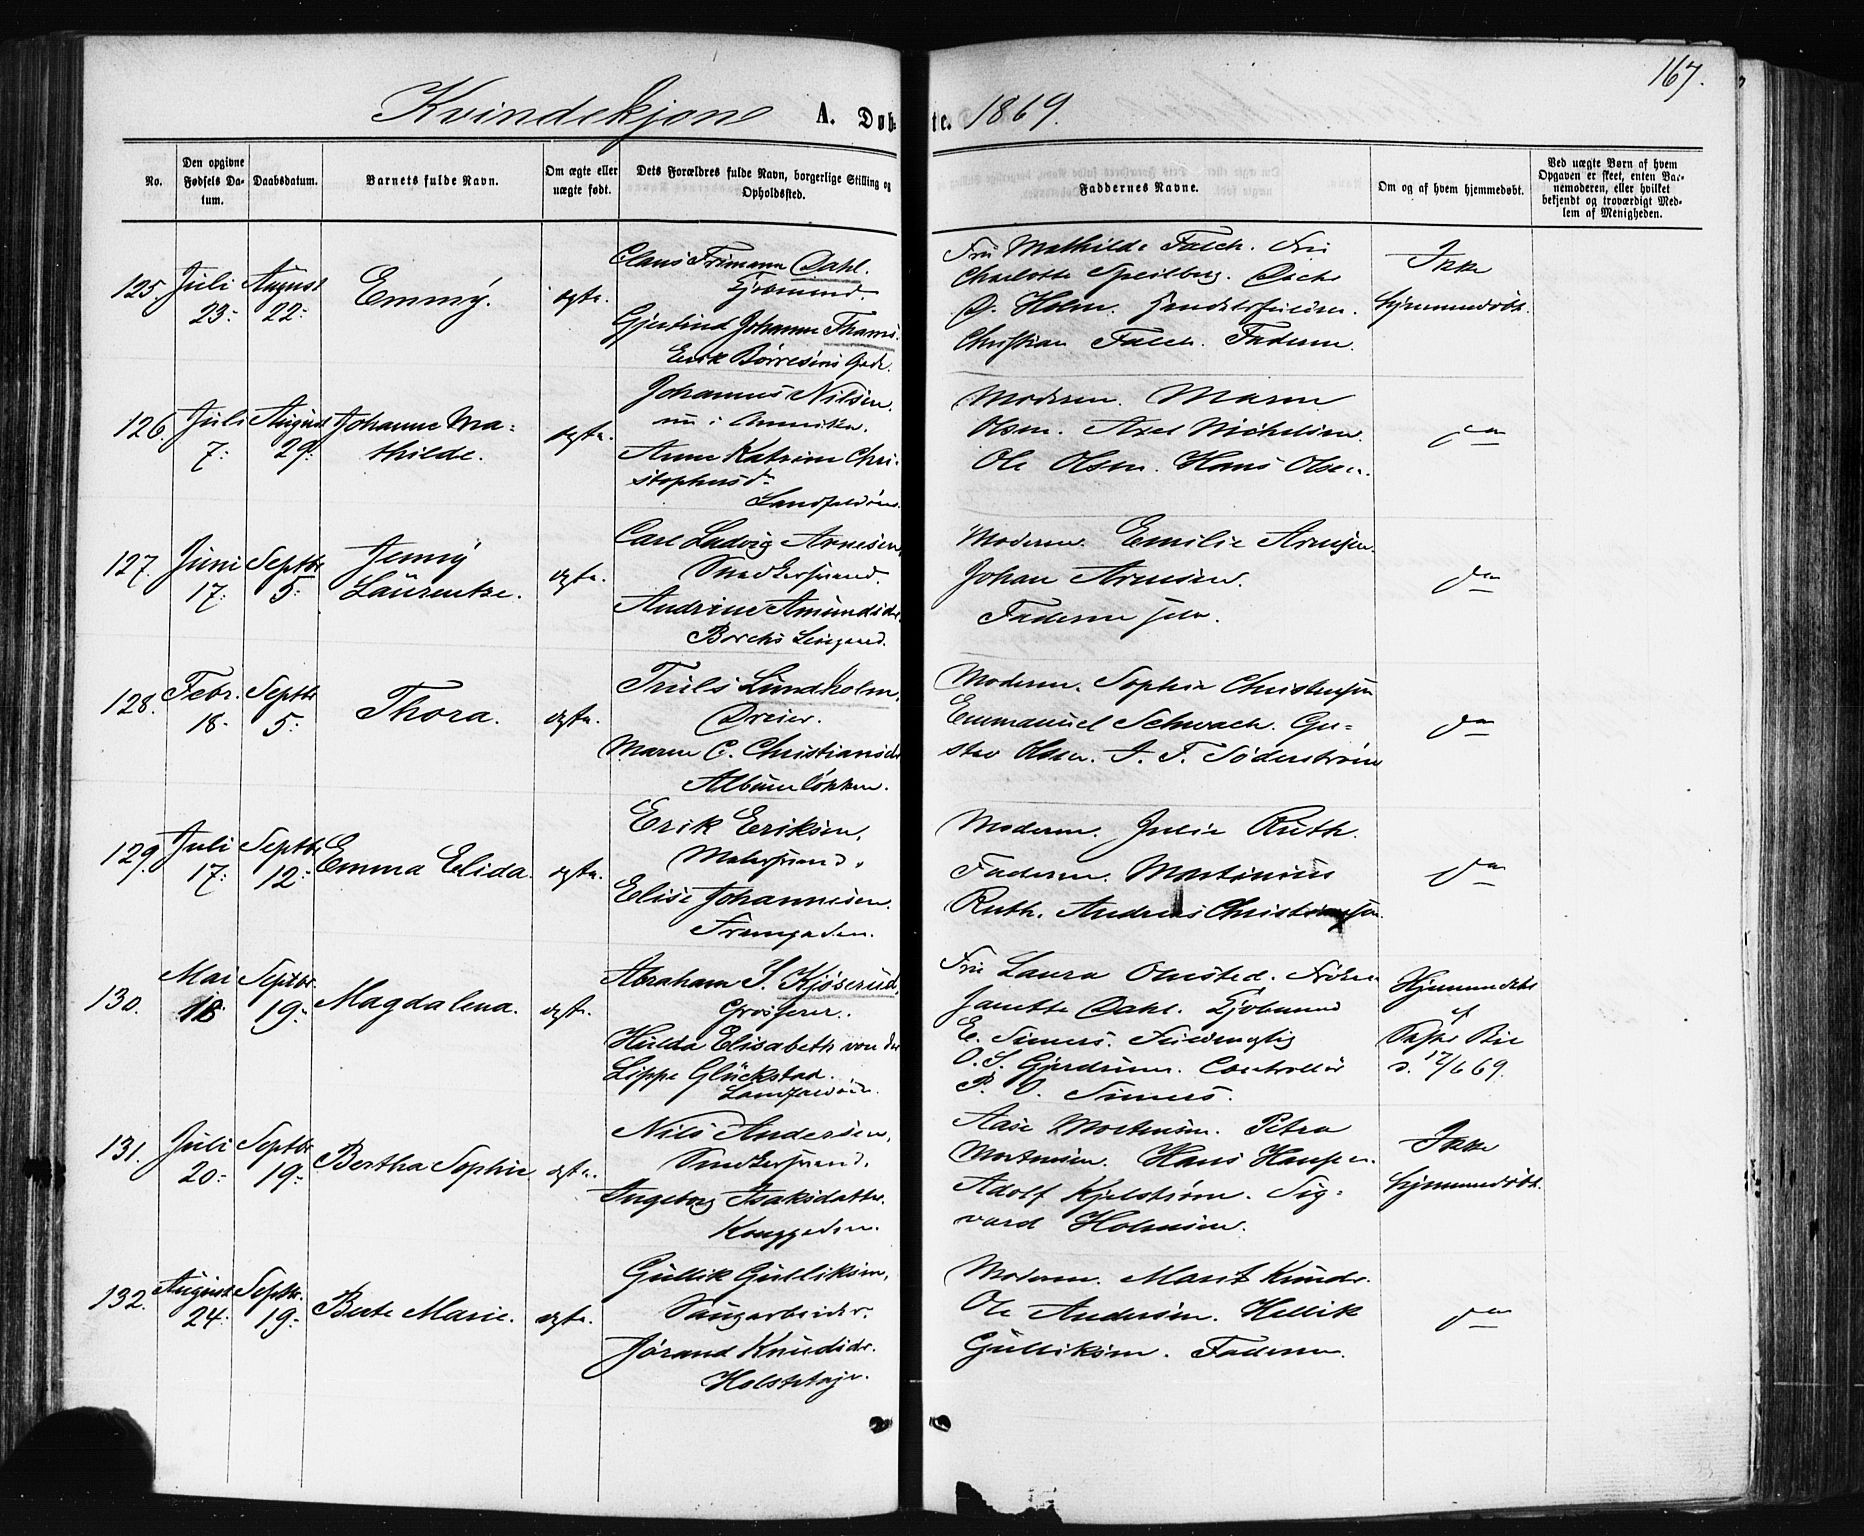 167.
Kvindekjøn A. Døbte. 1869.
No.
Den opgivne Fødsels Datum.
Daabsdatum.
Barnets fulde Navn.
Om ægte eller uægte født.
Dets Forældres fulde Navn, borgerlige Stilling og Opholdssted.
Faddernes Navne.
Om og af hvem hjemmedøbt.
Ved uægte Børn af hvem Opgaven er skeet, enten Barnemoderen, eller hvilket bekjendt og troværdigt Medlem af Menigheden.
125. Juli 23: August 22: Emmy. ægte.
Claus Frimann Dahl.
Kjøbmand.
Gjertrud Johanne Thams.
Erik Børresens Gade.
Fru Mathilde Falch. Fru
Charlotte Speilberg.
D. Holm.
Christian Falch. Faderen.
Ikke
hjemmedøbt.
126. Juli 7: August 29: Johanne Ma=
thilde. ægte.
Johannes Nilsen.
nu i Amerika.
Anne Katrine Chri-
stophersd.
Landfaldøen.
Moderen. Maren
Olsen. Axel Michelsen.
Ole Olsen. Hans Olsen.
do
127. Juni 17: Septbr 5: Jenny
Laurentze. ægte.
Carl Ludvig Arnesen,
Snedkersvend.
Andrine Amundsdr
Borchs
Moderen. Emilie Arnesen.
Johan Arnesen.
Faderen selv.
do
128. Febr. 18- Septbr 5: Thora. ægte.
Truls Lundholm,
Dreier.
Maren C. Christiansdr
Albumløkken.
Moderen. Sophie Christensen
Emmanuel Schwach. Gu=
stav Olsen. J. F. Söderstrøm
do
129. Juli 17: Septbr. 12: Emma Elida. ægte.
Erik Eriksen,
Malersvend.
Elise Johannesen.
Tramgaden.
Moderen. Julie Ruth.
Faderen. Martinius
Ruth. Andreas Christensen.
do
130. Mai 18 Septbr. 19: Magdalena. ægte.
Abraham S. Kjøserud,
Grosserer.
Hulda Elisabeth von der
Lippe Glückstad.
Landfaldøen.
Fru Laura Omsted. Frøken
Janette Dahl. Kjøbmand
E. Simers. Fuldmægtig
O. S. Gjerdrum. Controllør
P. O. Simers.
Hjemmedøbt
af
d. 17/6 69.
131. Juli 20: Septbr 19: Bertha Sophie ægte.
Nils Andersen,
Snedkersvend.
Ingeborg Isaksdatter.
Konggaden.
Aase Mortensen. Petra
Mortensen. Hans Hansen.
Adolf Kjelstrøm. Sig=
vard Holmsen.
Ikke
hjemmedøbt.
132. August 24: Septbr. 19: Berte Marie. ægte.
Gullik Gulliksen,
Saugarbeider.
Jørand Knudsdr.
Holsthage.
Moderen. Marit Knudsdr.
Ole Andersen. Hellik
Gulliksen. Faderen.
do